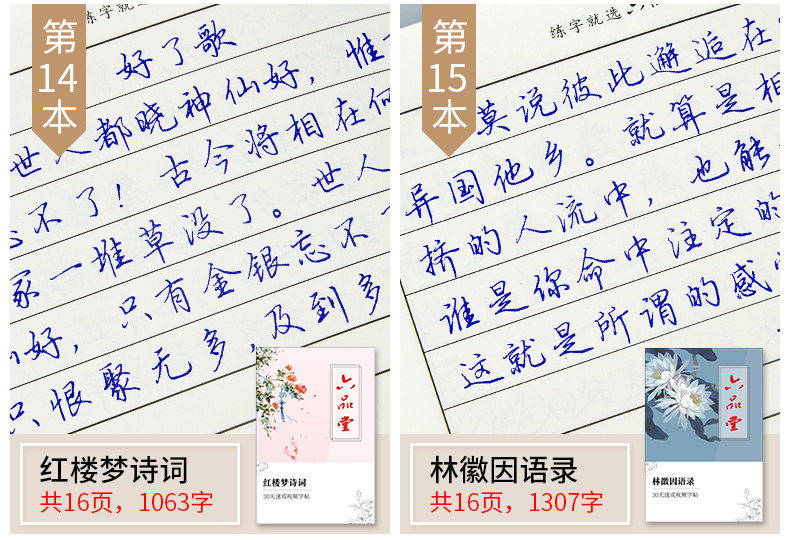 第
14
本
练字就
好了歌
世人都晓神仙好,惟
不了!古今将相在何
冢一堆草没了。世人
好,只有金银忘不
只恨聚无多,及到多
六品堂
红楼梦诗词
30天速成视频字帖
红楼梦诗词
共16页,1063字
第
15
本
练字就选
莫说彼此邂逅在
异国他乡。就算是相
挤的人流中,也能
谁是你命中注定的
这就是所谓的感
六品堂
林徽因语录
30天速成视频字帖
林徽因语录
共16页,1307字